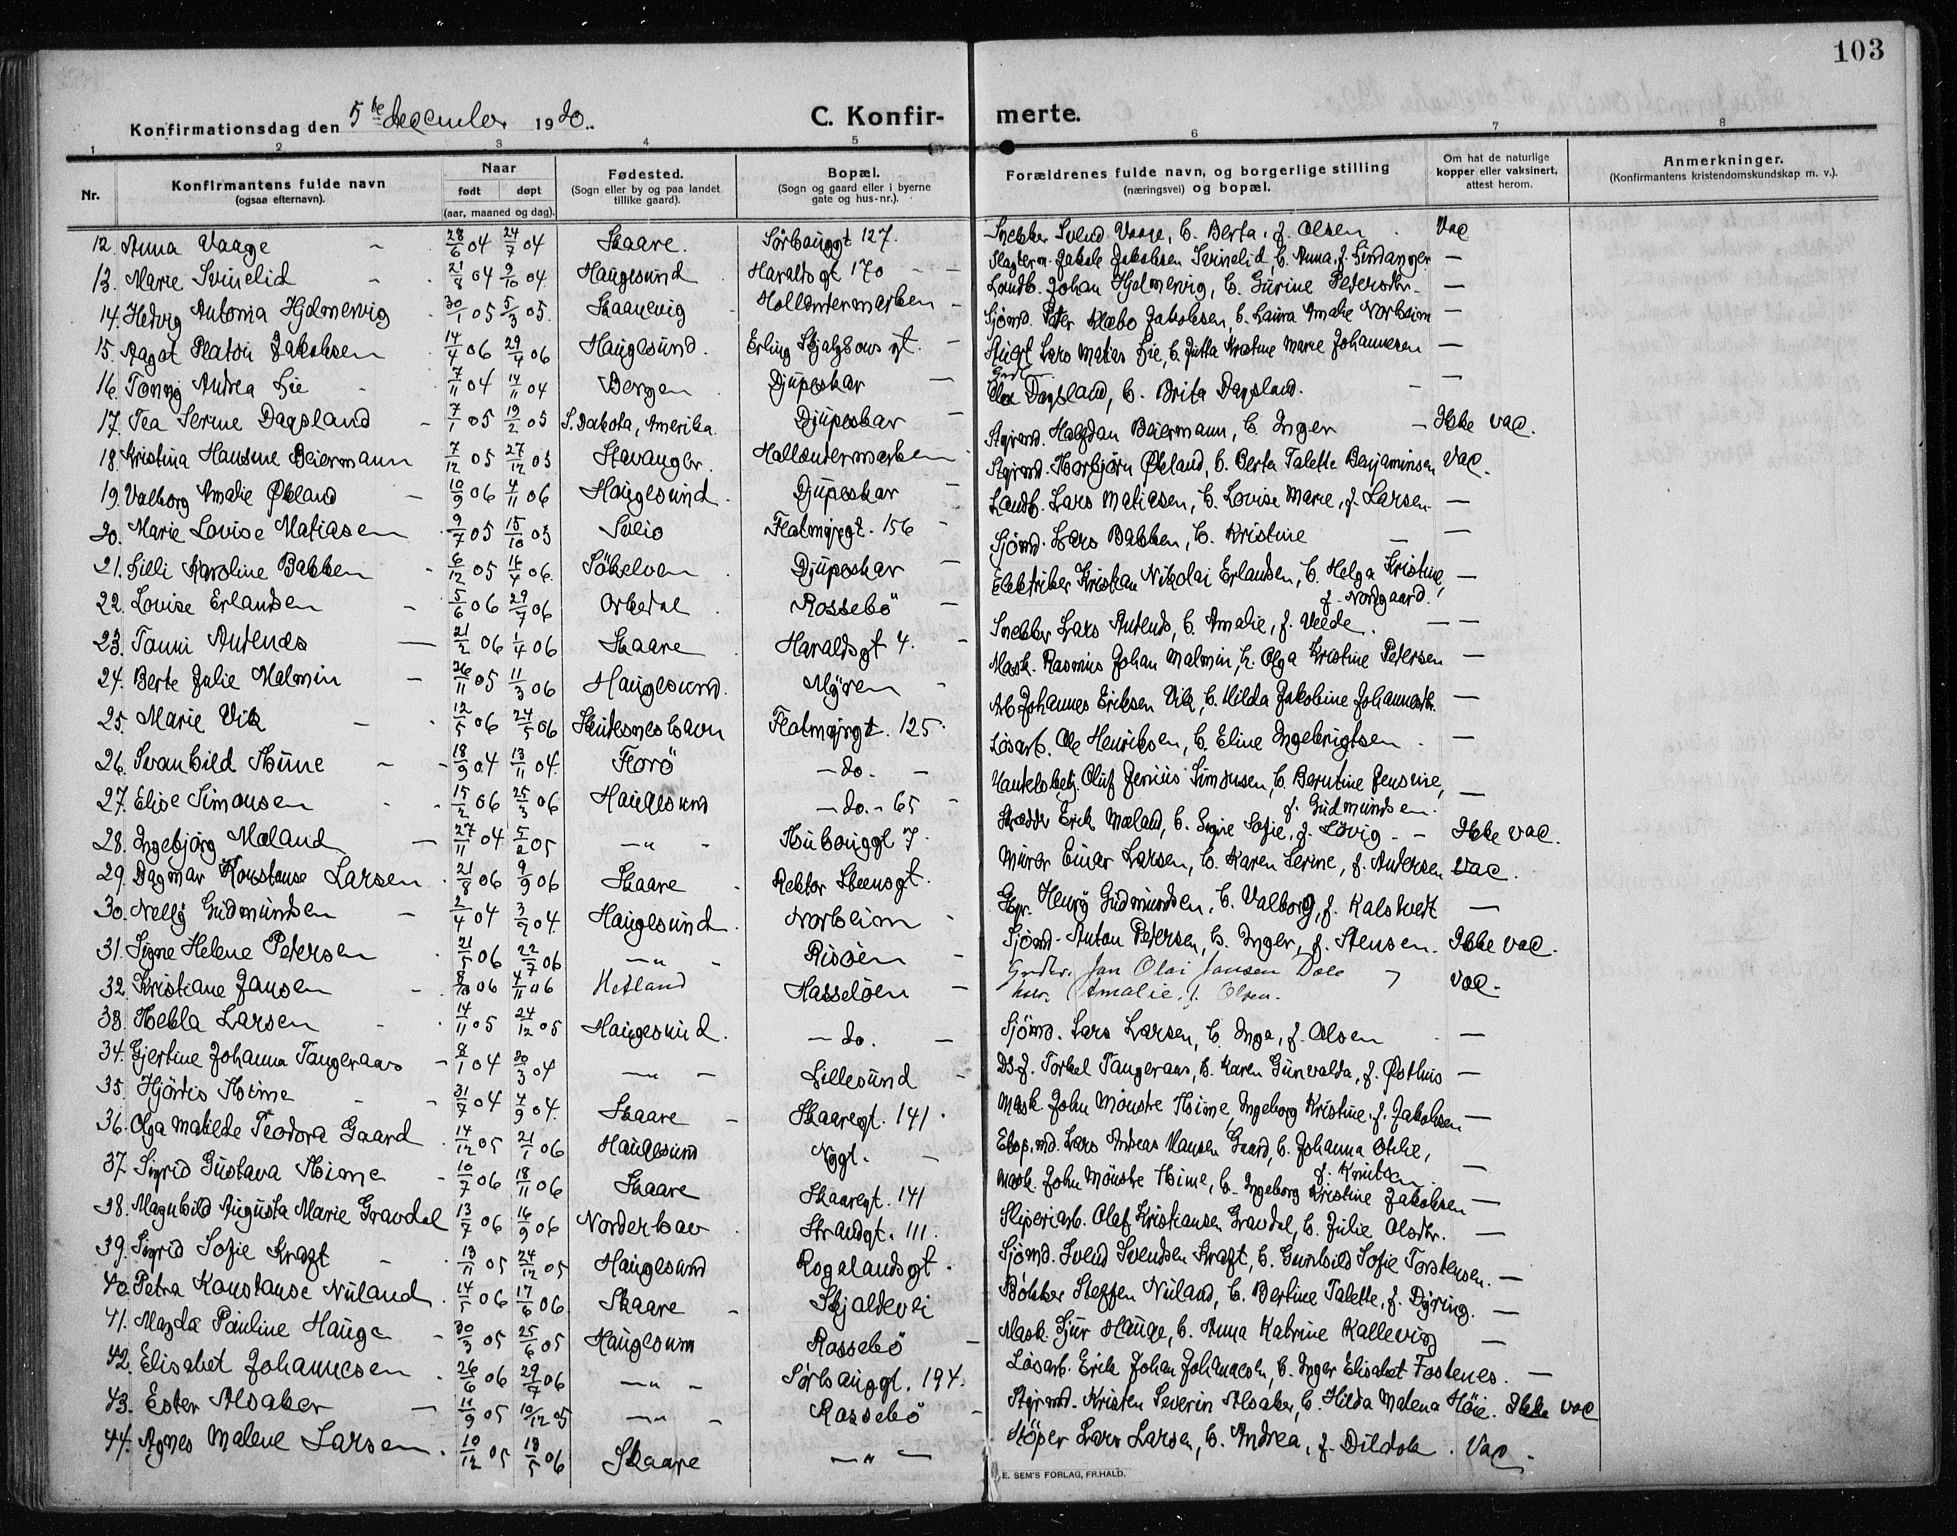 103
Konfirmationsdag den 5te december 1920. C. Konfirmerte.
1 2 3 4 5 6 7 8
Nr. Konfirmantens fulde navn (ogsaa efternavn). Naar født døpt (aar, maaned og dag). Fødested. (Sogn eller by og paa landet tillike gaard). Bopæl. (Sogn og gaard eller i byerne gate og hus-nr.). Forældrenes fulde navn, og borgerlige stilling (næringsvei) og bopæl. Om hat de naturlige kopper eller vaksinert, attest herom. Anmerkninger. (Konfirmantens kristendomskundskap m. v.).
12. Anna Vaage 28/6 04 24/7 04 Skaare. Sørhauggt 127. Snekker Svend Vaage, h. Berta, f. Olsen Vac
13. Marie Svinelid 21/8 04 9/10 04 Haugesund Haraldsgt 170 Slagterm. Jakob Jakobsen Svinelid, h. Anna, f. Lindanger —
14. Hedvig Antonia Hjelmervig 30/1 05 5/3 05. Skaanevig Hollendermarken Landh. Johan Hjelmervig, h. Gurine Pedersdtr. —
15. Aagot Platou Jakobsen 14/4 06 29/4 06 Haugesund. Erling Skjalgsons gt. Sjømd. Peter Klæbo Jakobsen, h. Laura Amalie Norheim —
16. Tonny Andrea Lie 7/11 04 14/11 04 Bergen Djupeskar Stuert Lars Matias Lie, h. Jutta Kristine Marie Johannesen —
17. Tea Serine Dagsland 7/1 05 19/2 05 S. Dakota, Amerika. Djupeskar Dagsland, h. Brita Dagsland. —
18. Kristina Hansine Beiermann 7/12 05 27/12 05 Stavanger. Hollendermarken Styrmd. Halfdan Beiermann, h. Inger Ikke vac.
19. Valborg Amalie Økland 10/9 06 4/11 06 Haugesund. Djupeskar Styrmd. Torbjørn Økland, h. Berta Talette Benjaminsen Vac.
20. Marie Lovise Matiasen 9/7 05 15/10 05 Sveio Flatmyrgt. 156 Landh. Lars Matiasen, h. Lovise Marie, f. Larsen —
21. Lilli Karoline Bakken 6/12 05 16/4 06. Søkelven Djupeskar Sjømd. Lars Bakken, h. Kristine —
22. Lovise Erlandsen 5/6 06 29/7 06 Orkedal Rossebø Elektriker Kristian Nikolai Erlandsen, h. Helga Kristine, —
f. Nordgaard.
23. Tanni Autenes 21/2 06 1/4 06 Skaare Haraldsgt 4. Snekker Lars Autenes, h. Amalie, f. Veede. —
24. Berte Julie Malmin 26/11 05 11/3 06 Haugesund. Myren Mask. Rasmus Johan Malmin, h. Olga Kristine Petersen —
25. Marie Vik 12/5 06 24/5 06 Skudesneshavn Flatmyrgt. 125. Arb Johannes Eriksen Vik, h. Hilda Jakobine Johannesdtr. —
26. Svanhild Thune 18/9 04 13/11 04. Florø — do. — Løsarb. Ole Henriksen, h. Eline Ingebrigtsen. —
27. Elise Simonsen 15/2 06 25/3 06 Haugesund — do. — 65 Handelsbetj. Oluf Jenius Simonsen, h. Berntine Jensine, —
f. Gudmundsen.
28. Ingebjørg Mæland 27/11 04 5/2 05 — " — Thuhauggt 7. Skrædder Erik Mæland, h. Signe Sofie, f. Løvig Ikke vac.
29. Dagmar Konstanse Larsen 21/8 06 9/9 06 Skaare Rektor Steensgt. Murer Einar Larsen, h. Karen Serine, f. Andersen Vac.
30. Nelly Gudmundsen 2/4 04 3/7 04. Haugesund. Norheim Henry Gudmundsen, h. Valborg, f. Kalstvedt —
31. Signe Helene Petersen 21/5 06 22/7 06 — " — Risøen Sjømd. Anton Petersen, h. Inger, f. Stensen. Ikke vac.
32. Kristiane Jansen 8/10 06 4/11 06 Hetland Hasseløen Jan Olai Jansen Dale Vac.
Amalie, f. Olsen.
33. Thekla Larsen 14/11 05 24/12 05 Haugesund. — do. — Sjømd. Lars Larsen, h. Inga, f. Olsen —
34. Gjertine Johanna Tangeraas 8/1 04 20/3 04 — " — Lillesund DB.f. Torkel Tangeraas, h. Karen Gunvalda, f. Østhus —
35. Hjørdis Thime 31/7 04 4/9 04. Skaare Skaaregt. 141. Mask John Mønstre Thime, Ingeborg Kristine, f. Jakobsen —
36. Olga Matilde Teodora Gaard 14/12 05 21/1 06 Haugesund Nygt. Eksp.md. Lars Andreas Hansen Gaard, h. Johanna Otilie, —
f. Knutsen.
37. Sigrid Gustava Thime 10/7 06 18/11 06 Skaare Skaaregt. 141 Mask. John Mønstre Thime, h. Ingeborg Kristine Jakobsen —
38. Magnhild Augusta Marie Gravdal 13/7 06 16/9 06 Norderhov Strandgt. 111. Sliperiarb. Olaf Kristiansen Gravdal, h. Julie Olsdtr. —
39. Sigrid Sofie Kraft 13/11 05 24/12 05 Haugesund Rogalandsgt. Sjømd. Svend Svendsen Kraft, h. Gunhild Sofie Torstensen. —
40. Petra Konstanse Nuland 14/5 06 17/6 06 Skaare Skjoldevei Bøkker Steffen Nuland, h. Bertine Talette, f. Dyring. —
41. Magda Pauline Hauge 30/3 05 25/6 05 Haugesund Rossebø Mask. Sjur Hauge, h. Anna Katrine Kallevig —
42. Elisabet Johannesen 26/6 06 29/7 06 — " — Sørhauggt. 194. Løsarb. Erik Johan Johannesen, h. Inger Elisabet Fostenes. —
43. Ester Alsaker 11/9 05 10/12 05 — " — Rossebø Styrmd. Kristen Severin Alsaker, h. Hilda Malena Høie. Ikke vac
44. Agnes Malene Larsen 10/12 05 13/5 06 Skaare — " — Støper Lars Larsen, h. Andrea, f. Dildok. Vac.
E. SEM'S FORLAG, FR.HALD.